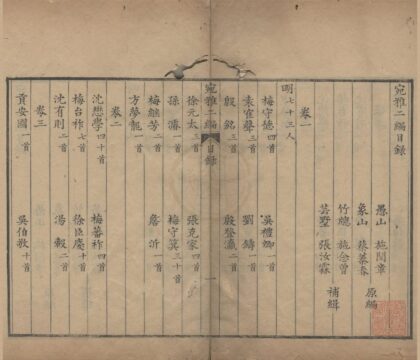 宛雅二編目錄
愚山 施閏章
象山 蔡蓁春 原編
竹總 施念曾
芸墅 張汝霖 補緝
卷一
明七十三人
梅守德四首 吳禮卿一首
袁崔聲三首 劉鑄一首
殷銘三首 殷登瀛二首
宛雅二編 目錄 一
徐元太三首 張克家四首
孫濬一首 梅守箕三十首
梅繼芳二首 詹沂一首
方夢龍一首
卷二
沈懋學四十首 梅蕃祚四首
梅台祚七首 徐臣慶十首
沈有則二首 湯毅二首
卷三
貢安國一首 吳伯敦十首